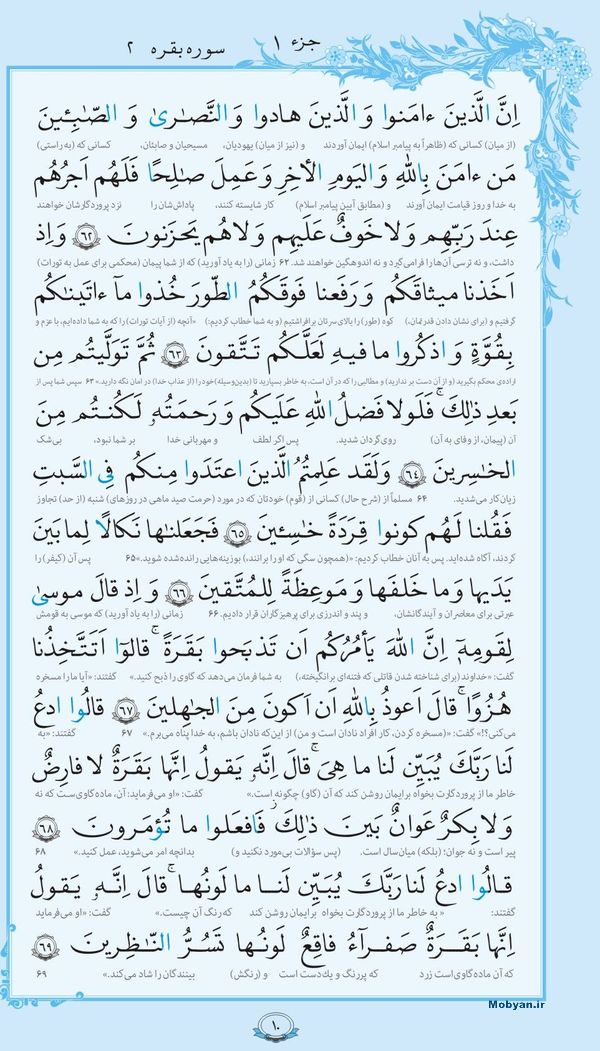 جزء ۱
سوره بقره ۲
اِنَّ الَّذينَ ءامَنوا وَ الَّذينَ هادوا وَ النَّصارىٰ وَ الصّابِئينَ
(از میان) کسانی که (ظاهراً به پیامبر اسلام) ایمان آوردند و (نیز از میان) یهودیان، مسیحیان و صابئان، کسانی که (به راستی)
مَن ءامَنَ بِاللهِ وَ اليَومِ الأخِرِ وَ عَمِلَ صالِحًا فَلَهُم اَجرُهُم
به خدا و روز قیامت ایمان آورند و (مطابق آیین پیامبر اسلام) کار شایسته کنند، پاداش‌شان را نزد پروردگارشان خواهند
عِندَ رَبِّهِم وَ لا خَوفٌ عَلَيهِم وَ لا هُم يَحزَنونَ ﴿٦٢﴾ وَ اِذ
داشت، و نه ترسی آن‌ها را فرامی‌گیرد و نه اندوهگین خواهند شد. ۶۲ زمانی (را به یاد آورید) که از شما پیمان (محکمی برای عمل به تورات)
اَخَذنا ميثاقَكُم وَ رَفَعنا فَوقَكُمُ الطّورَ خُذوا ما ءاتَيناكُم
گرفتیم و (برای نشان دادن قدرتمان،) کوه (طور) را بالای سرتان برافراشتیم (و به شما خطاب کردیم:) «آنچه (از آیات تورات) را که به شما داده‌ایم، با عزم و
بِقُوَّةٍ وَ اذكُروا ما فيهِ لَعَلَّكُم تَتَّقونَ ﴿٦٣﴾ ثُمَّ تَوَلَّيتُم مِن
اراده‌ی محکم بگیرید (و از آن دست بر ندارید) و مطالبی را که در آن است، به خاطر بسپارید تا (بدین‌وسیله) خود را (از عذاب خدا) در امان نگه دارید.» ۶۳ سپس شما پس از
بَعدِ ذٰلِكَ ۚ فَلَولا فَضلُ اللهِ عَلَيكُم وَ رَحمَتُهُ لَكُنتُم مِنَ
آن (پیمان، از وفای به آن) روی‌گردان شدید. پس اگر لطف و مهربانی خدا بر شما نبود، بی‌شک
الخاسِرينَ ﴿٦٤﴾ وَ لَقَد عَلِمتُمُ الَّذينَ اعتَدَوا مِنكُم فِي السَّبتِ
زیان‌کار می‌شدید. ۶۴ مسلماً از (شرح حال) کسانی از (قوم) خودتان که در مورد (حرمت صید ماهی در روزهای) شنبه (از حد) تجاوز
فَقُلنا لَهُم كونوا قِرَدَةً خاسِئينَ ﴿٦٥﴾ فَجَعَلناها نَكالًا لِما بَينَ
کردند، آگاه شده‌اید. پس به آنان خطاب کردیم: «(همچون سگی که او را برانند،) بوزینه‌هایی رانده‌شده شوید.»۶۵ پس آن (کیفر) را
يَدَيها وَ ما خَلفَها وَ مَوعِظَةً لِلمُتَّقينَ ﴿٦٦﴾ وَ اِذ قالَ موسىٰ
عبرتی برای معاصران و آیندگانشان، و پند و اندرزی برای پرهیزگاران قرار دادیم. ۶۶ زمانی (را به یاد آورید) که موسی به قومش
لِقَومِهِ اِنَّ اللهَ يَأمُرُكُم اَن تَذبَحوا بَقَرَةً ۚ قالوا اَتَتَّخِذُنا
گفت: «خداوند (برای شناخته شدن قاتلی که فتنه‌ای برانگیخته،) به شما فرمان می‌دهد که گاوی را ذبح کنید.» گفتند: «آیا ما را مسخره
هُزُوًا ۚ قالَ اَعوذُ بِاللهِ اَن اَكونَ مِنَ الجاهِلينَ ﴿٦٧﴾ قالُوا ادعُ
می‌کنی؟!» گفت: «(مسخره کردن، کار افراد نادان است و من) از این‌که نادان باشم، به خدا پناه می‌برم.» ۶۷ گفتند: «به
لَنا رَبَّكَ يُبَيِّن لَنا ما هِيَ ۚ قالَ اِنَّهُ يَقولُ اِنَّها بَقَرَةٌ لا فارِضٌ
خاطر ما از پروردگارت بخواه برایمان روشن کند که آن (گاو) چگونه است.» گفت: «او می‌فرماید: آن، ماده‌گاوی‌ست که نه
وَ لا بِكرٌ عَوانٌ بَينَ ذٰلِكَ ۖ فَافعَلوا ما تُؤمَرونَ ﴿٦٨﴾
پیر است و نه جوان؛ (بلکه) میان‌سال است. (پس سؤالات بی‌مورد نکنید و) بدانچه امر می‌شوید، عمل کنید.» ۶۸
قالُوا ادعُ لَنا رَبَّكَ يُبَيِّن لَنا ما لَونُها ۚ قالَ اِنَّهُ يَقولُ
گفتند: «به خاطر ما از پروردگارت بخواه برایمان روشن کند که رنگ آن چیست.» گفت: «او می‌فرماید
اِنَّها بَقَرَةٌ صَفراءُ فاقِعٌ لَونُها تَسُرُّ النّاظِرينَ ﴿٦٩﴾
که آن ماده‌گاوی است زرد که پررنگ و یك‌دست است و (رنگش) بینندگان را شاد می‌کند.» ۶۹
Mobyan.ir
۱۰